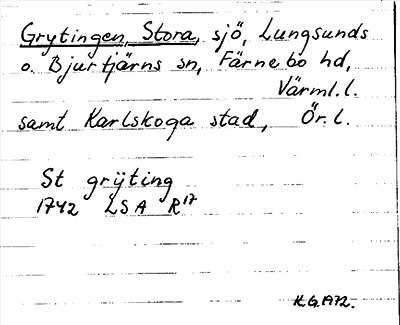 Grytingen, Stora, sjö, Lungsunds
o. Bjurtjärns sn, Färnebo hd,
Värml. l.
samt Karlskoga stad, Ör. l.
St grÿting
1742 LSA R17
K.G.1972.